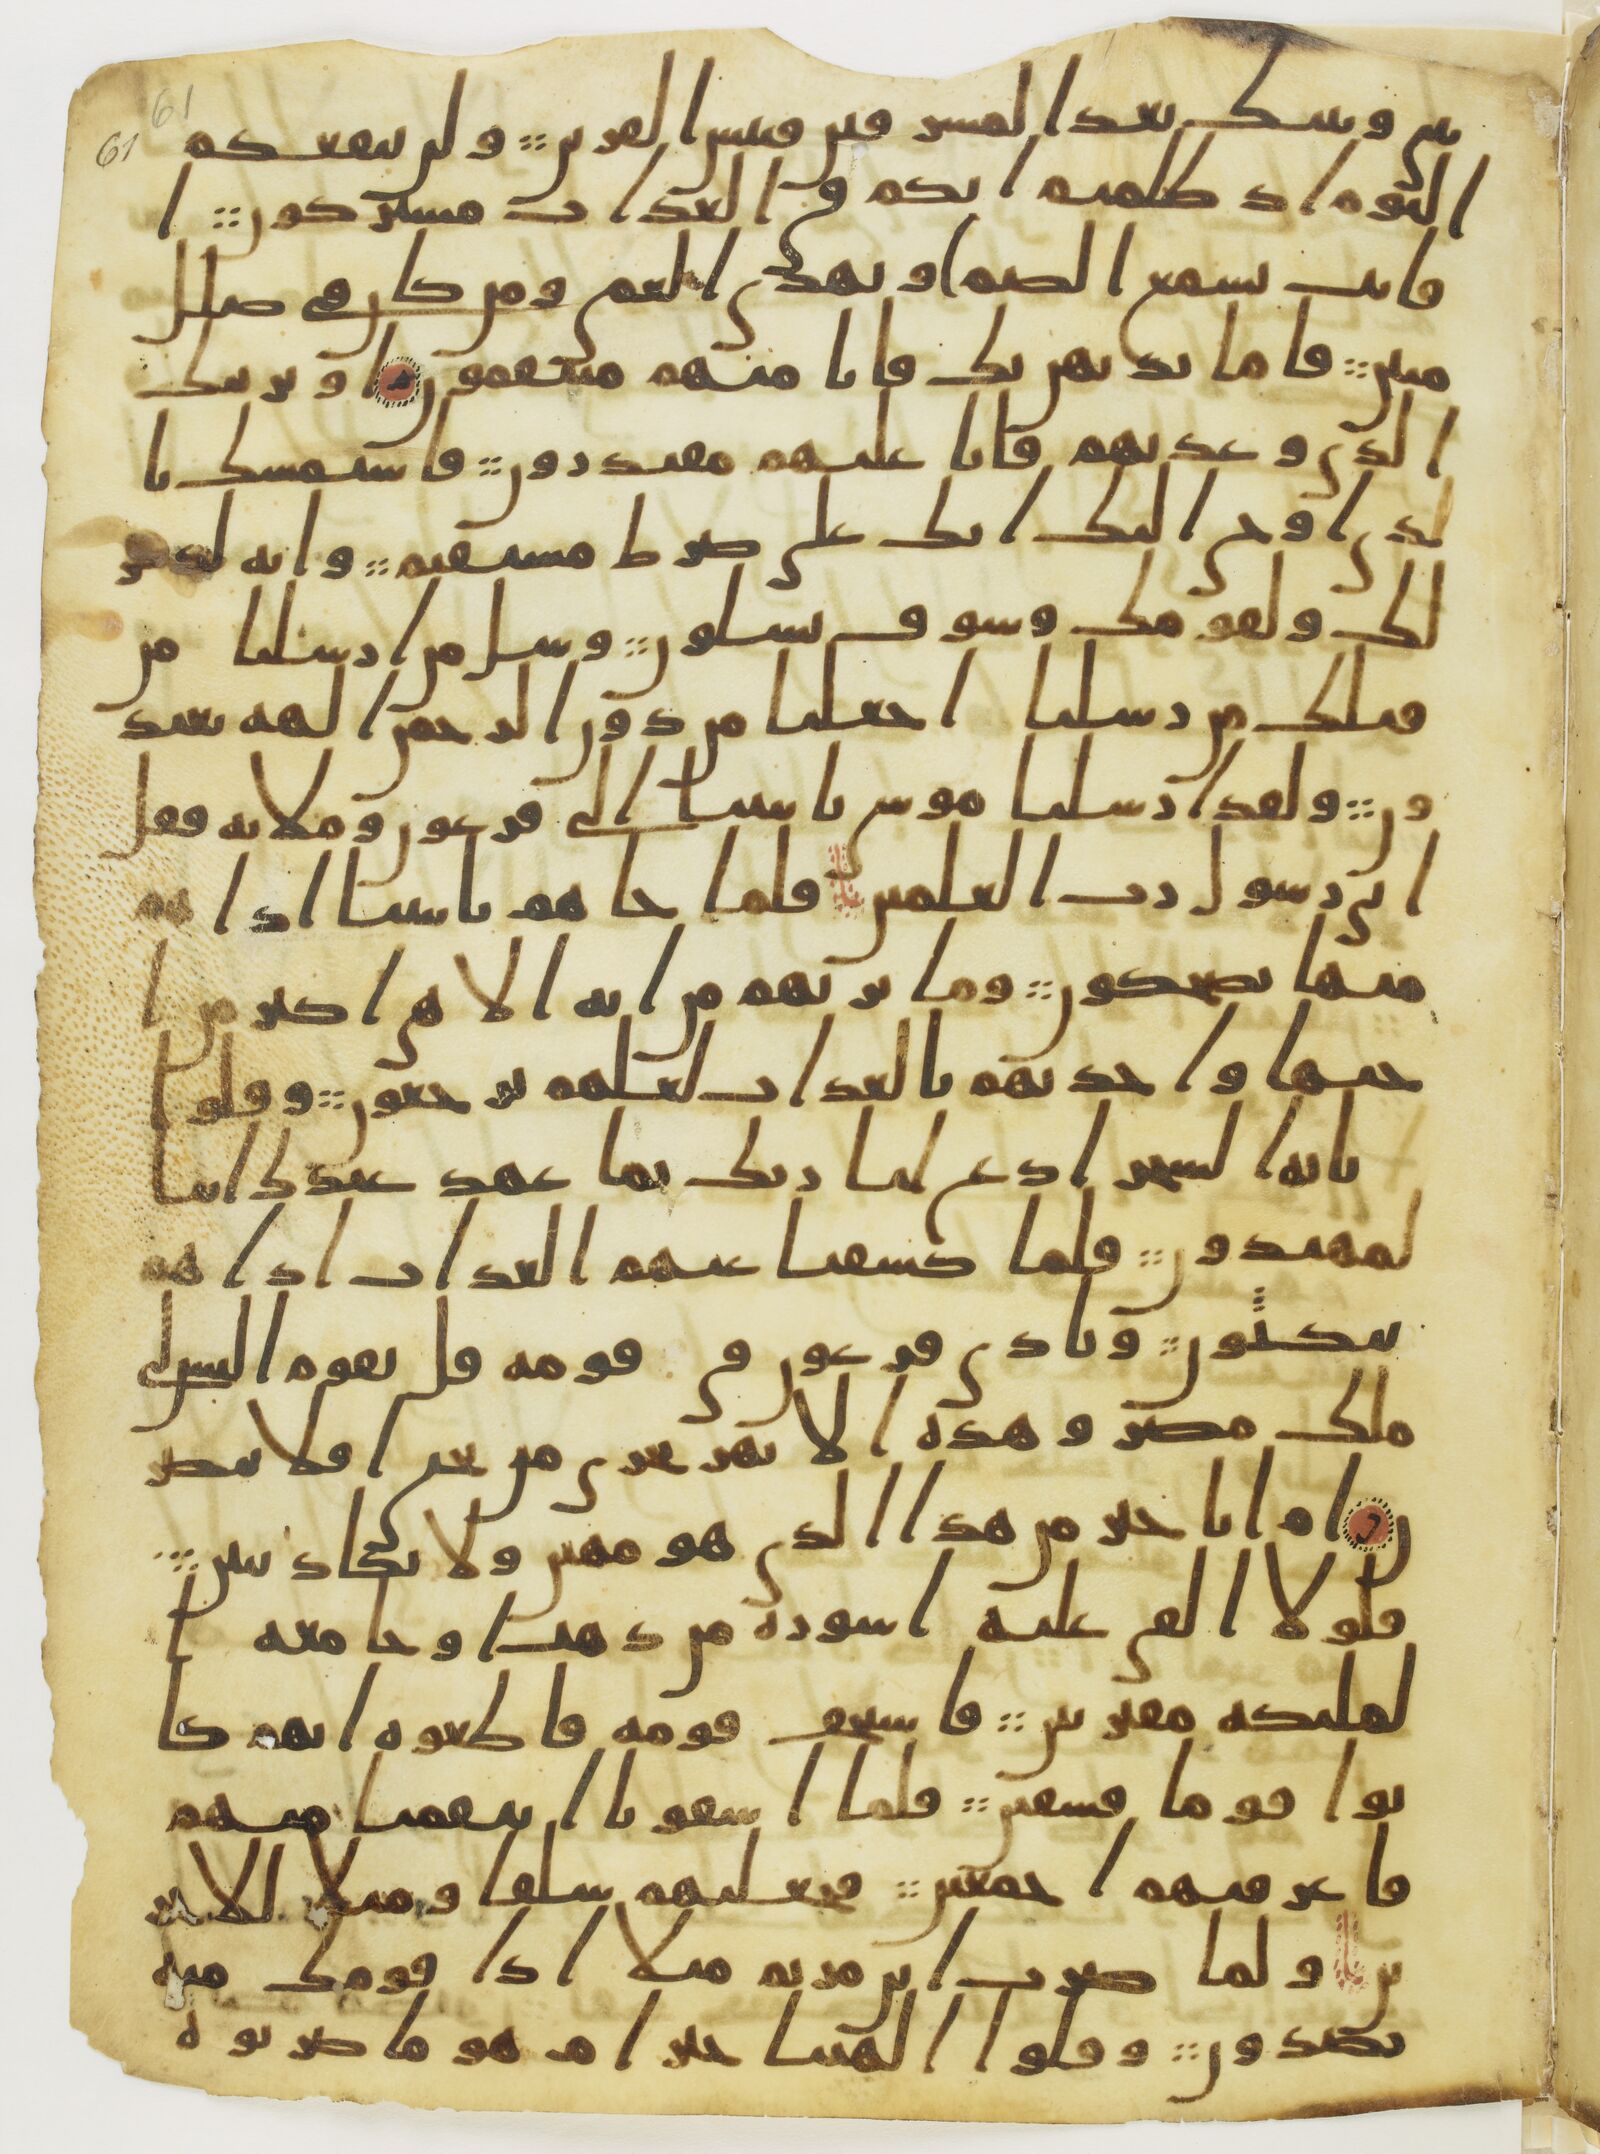 61
61
ني وبينك بعد المشرقين فبئس القرين :: ولن ينفعكم
اليوم اذ ظلمتم انكم في العذاب مشتركون :: ا
فانت تسمع الصم او تهدي العمي ومن كان في ضلل
مبين :: فاما نذهبن بك فانا منهم منتقمون او نرينك
الذي وعدنهم فانا عليهم مقتدرون :: فاستمسك با
لذي اوحي اليك انك على صرط مستقيم :: وانه لذكر
لك ولقومك وسوف تسلون :: وسل من ارسلنا من
قبلك من رسلنا اجعلنا من دون الرحمن الهة يعبد
ون :: ولقد ارسلنا موسى باييتنا الى فرعون وملايه فقل
اني رسول رب العلمين فلما جاهم باييتنا اذا هم
منها يضحكون :: وما نريهم من اية الا هي اكبر من ا
ختها واخذنهم بالعذاب لعلهم يرجعون :: وقلوا
يايه السحر ادع لنا ربك بما عهد عندك اننا
لمهتدون :: فلما كشفنا عنهم العذاب اذا هم
ينكثون :: ونادى فرعون في قومه قل يقوم اليس لي
ملك مصر وهذه الانهر تجري من تحتي افلا تبصرو
ن ام انا خير من هذا الذي هو مهين ولا يكاد يبين ::
فلولا القي عليه اسورة من ذهب او جا معه ا
لمليكة مقترنين :: فاستخف قومه فاطعوه انهم كا
نوا قوما فسقين :: فلما اسفونا انتقمنا منهم
فاغرقنهم اجمعين :: فجعلنهم سلفا ومثلا للاخر
ين ولما ضرب ابن مريم مثلا اذا قومك منه
يصدون :: وقلوا االهتنا خير ام هو ما ضربوه